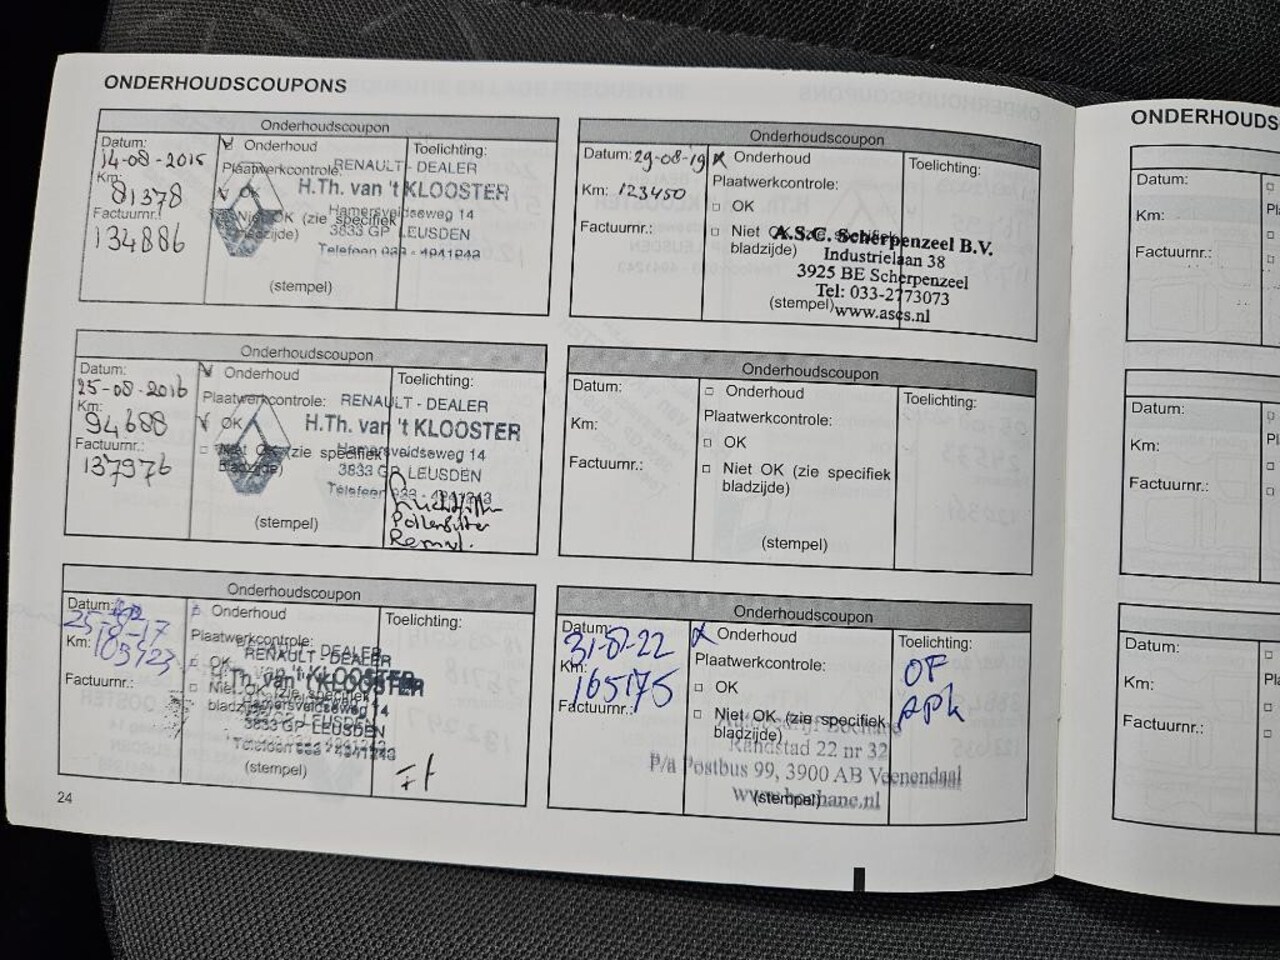 ONDERHOUDSCOUPONS
Onderhoudscoupon
Datum:
14-08-2015
Km:
81378
Factuurnr.:
134886
Onderhoud
Plaatwerkcontrole:
OK
Niet OK (zie specifiek
bladzijde)
(stempel)
Toelichting:
RENAULT - DEALER
H.Th. van 't KLOOSTER
Hamersveldseweg 14
3833 GP LEUSDEN
Telefoon 033 - 4941243
Onderhoudscoupon
Datum:
25-08-2016
Km:
94688
Factuurnr.:
137976
Onderhoud
Plaatwerkcontrole:
OK
Niet OK (zie specifiek
bladzijde)
(stempel)
Toelichting:
RENAULT - DEALER
H.Th. van 't KLOOSTER
Hamersveldseweg 14
3833 GP LEUSDEN
Telefoon 033 - 4941243
Pollenfilter
Onderhoudscoupon
Datum:
25-8-17
Km:
103723
Factuurnr.:
Onderhoud
Plaatwerkcontrole:
OK
Niet OK (zie specifiek
bladzijde)
(stempel)
Toelichting:
RENAULT - DEALER
H.Th. van 't KLOOSTER
Hamersveldseweg 14
3833 GP LEUSDEN
Telefoon 033 - 4941243
24
Onderhoudscoupon
Datum: 29-08-19
Km: 123450
Factuurnr.:
Onderhoud
Plaatwerkcontrole:
OK
Niet OK (zie specifiek
bladzijde)
(stempel)
Toelichting:
A.S.C. Scherpenzeel B.V.
Industrielaan 38
3925 BE Scherpenzeel
Tel: 033-2773073
www.ascs.nl
Onderhoudscoupon
Datum:
Km:
Factuurnr.:
Onderhoud
Plaatwerkcontrole:
OK
Niet OK (zie specifiek
bladzijde)
(stempel)
Toelichting:
Onderhoudscoupon
Datum:
31-8-22
Km:
165175
Factuurnr.:
Onderhoud
Plaatwerkcontrole:
OK
Niet OK (zie specifiek
bladzijde)
(stempel)
Toelichting:
OF
apk
Autobedrijf Bochane
Randstad 22 nr 32
P/a Postbus 99, 3900 AB Veenendaal
www.bochane.nl
ONDERHOUDS
Datum:
Km:
Factuurnr.:
Datum:
Km:
Factuurnr.:
Datum:
Km:
Factuurnr.: